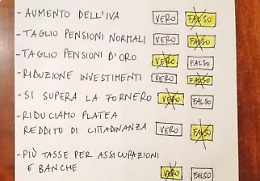 - AUMENTO DELL'IVA VERO FALSO
- TAGLIO PENSIONI NORMALI VERO FALSO
- TAGLIO PENSIONI D'ORO VERO FALSO
- RIDUZIONE INVESTIMENTI VERO FALSO
- SI SUPERA LA FORNERO VERO FALSO
- RIDUCIAMO PLATEA
REDDITO DI CITTADINANZA VERO FALSO
- PIÙ TASSE PER ASSICURAZIONI
E BANCHE VERO FALSO